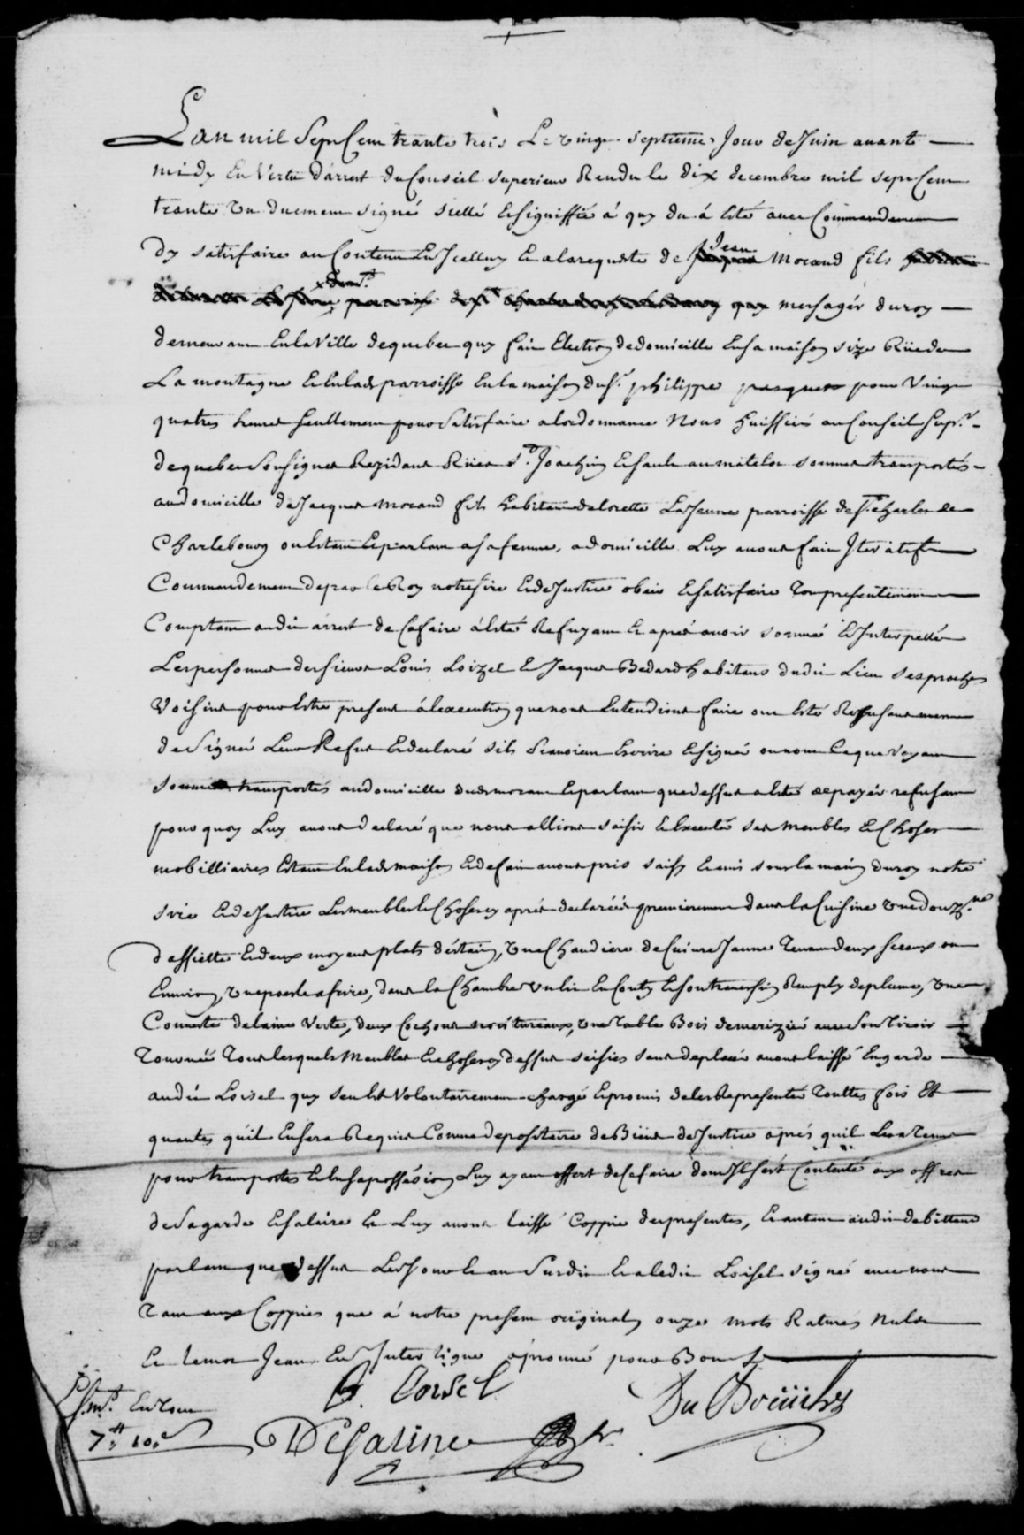 Lan mil Sept Cent trante trois Le vingt septieme Jour de Juin avant
midy En Vertu d'arrest du Conseil superieur Rendu le dix decembre mil sept Cent
trante Un duement signé scellé & signiffié à quy du à Esté avec Commandement
dy satisfaire au Contenu En Jcelluy & a la requeste de Jean Morand fils
messager du roy
demeurant En la Ville de quebec quy fait Election de domicille En sa maison size Rüe de
La montagne & En lad. parroisse En la maison du Sr. philippe pour Vingt
quatres heures seullement pour Satisfaire a lordonnance Nous huissiers au Conseil Supr.
de quebec Soussignes Rezidant Rües St. Joachim & Sault au matelot sommes transportés
au domicille de Jacques morand fils habitant de lorette La Jeune parroisse de St. Charles de
Charlebourg ou Estant & parlant a sa femme, a domicille Luy avons fait Jteratif
Commandement de par le Roy notre sire & de Justice obeir & satisfaire presentement
Comptant audit arrest de Ce faire à Esté Refuzant & aprés avoir sommé & Interpellé
Les personnes des sieurs Louis Loizel & Jacques Bedard habitans dudit Lieu ses proches
Voisins pour Estre present à lexecution que nous Entendions faire ont Esté Refusans mesme
de Signer Leur Refus & declaré sils Scavoient Escrire & signer ou non Ce que voyant
sommes transportés au domicille dud. morand & parlant que dessus a Esté de payer refusant
pour quoy Luy avons declaré que nous allions saisir & Executer ses meubles & Choses
mobilliaires Estant En lad. maison & de fait avons pris saisy & mis sous la main du roy notre
sire & de Justice Les meubles & Choses cy aprés declarées premierement dans la Cuisine Une douzne.
d'assiette & deux moyens plats d'étain, Une Chaudiere de Cuivre Jaune Tenant deux sceaux ou
Environ, Une poesle a frire, dans la Chambre Un lit En Couty & son traversin Remply de plume, Une
Couverte de laine Verte, deux Cochons Une Table Bois de merizier avec Son tiroir
Tourné Tous lesquels Meubles & Choses cy dessus saisies sans deplacer avons laissé En garde
audit Loisel quy sen Est Volontairement chargé & promis de les Representer Touttes fois Et
quantes qu'il En sera Requis Comme depositaire de Biens de Justice aprés quil
pour transportés & En sa possession Luy ayant offert de Ce faire dont Jl s'est Contenté aux offres
de Sa garde & salaire & Luy avons laissé Coppie des presentes, & autant audit debitteur
parlant que dessus Les Jour & an Susdit & a ledit Loisel signé avec nous
Tant aux Coppies que à notre present original, onze mots Ratures Nuls
Et le mot Jean En Interligne aprouvé pour Bon
Loisel
Du Breüil hr
Desaline hr
7tt 10s